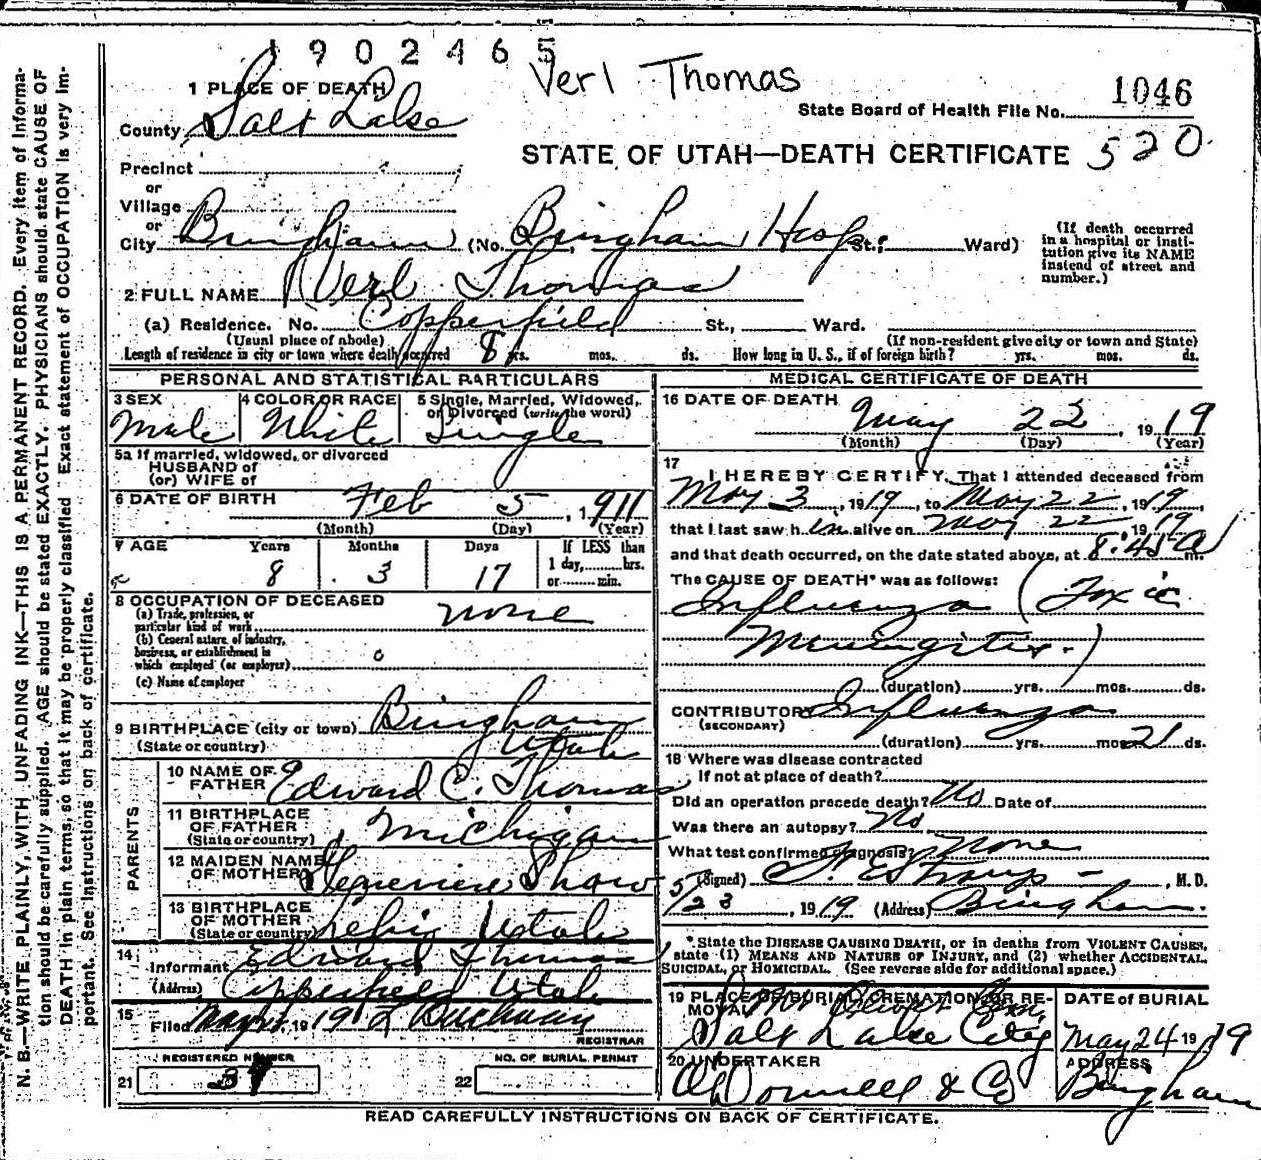 1902465
Verl Thomas
1 PLACE OF DEATH
State Board of Health File No. 1046
County Salt Lake
STATE OF UTAH—DEATH CERTIFICATE 520
Precinct
or
Village
or
City Bingham (No. Bingham Hosp St.; Ward)
(If death occurred in a hospital or institution give its NAME instead of street and number.)
2 FULL NAME Verl Thomas
(a) Residence. No. Copperfield St., Ward.
(Usual place of abode) (If non-resident give city or town and State)
Length of residence in city or town where death occurred 8 yrs. mos. ds. How long in U. S., if of foreign birth? yrs. mos. ds.
PERSONAL AND STATISTICAL PARTICULARS
3 SEX Male
4 COLOR OR RACE White
5 Single, Married, Widowed, or Divorced (write the word) Single
5a If married, widowed, or divorced
HUSBAND of
(or) WIFE of
6 DATE OF BIRTH Feb 5, 1911
(Month) (Day) (Year)
7 AGE Years Months Days If LESS than
1 day, hrs.
8 3 17 or min.
8 OCCUPATION OF DECEASED
(a) Trade, profession, or particular kind of work none
(b) General nature of industry, business, or establishment in which employed (or employer)
(c) Name of employer
9 BIRTHPLACE (city or town) Bingham
(State or country) Utah
PARENTS
10 NAME OF FATHER Edward C. Thomas
11 BIRTHPLACE OF FATHER (State or country) Michigan
12 MAIDEN NAME OF MOTHER Genevieve Shaw
13 BIRTHPLACE OF MOTHER (State or country) Lehi Utah
14 Informant Edward Thomas
(Address) Copperfield Utah
15 Filed 1919 Buchanan
REGISTRAR
REGISTERED NUMBER
NO. OF BURIAL PERMIT
21
22
MEDICAL CERTIFICATE OF DEATH
16 DATE OF DEATH May 22, 1919
(Month) (Day) (Year)
17 I HEREBY CERTIFY, That I attended deceased from
May 3, 1919, to May 22, 1919,
that I last saw h im alive on May 22 1919
and that death occurred, on the date stated above, at 8:45 A m.
The CAUSE OF DEATH* was as follows:
Influenza (Toxic
Meningitis.)
(duration) yrs. mos. ds.
CONTRIBUTORY Influenza
(SECONDARY)
(duration) yrs. mos. 21 ds.
18 Where was disease contracted
If not at place of death?
Did an operation precede death? No Date of
Was there an autopsy? No
What test confirmed diagnosis? None
(Signed) , M. D.
5/23, 1919 (Address) Bingham.
*State the DISEASE CAUSING DEATH, or in deaths from VIOLENT CAUSES, state (1) MEANS AND NATURE OF INJURY, and (2) whether ACCIDENTAL, SUICIDAL, or HOMICIDAL. (See reverse side for additional space.)
19 PLACE OF BURIAL, CREMATION OR REMOVAL
Salt Lake City
DATE of BURIAL
May 24 1919
20 UNDERTAKER
O'Donnell & Co
ADDRESS
Bingham
READ CAREFULLY INSTRUCTIONS ON BACK OF CERTIFICATE.
N. B.—WRITE PLAINLY, WITH UNFADING INK—THIS IS A PERMANENT RECORD. Every item of information should be carefully supplied. AGE should be stated EXACTLY. PHYSICIANS should state CAUSE OF DEATH in plain terms, so that it may be properly classified. Exact statement of OCCUPATION is very important. See instructions on back of certificate.